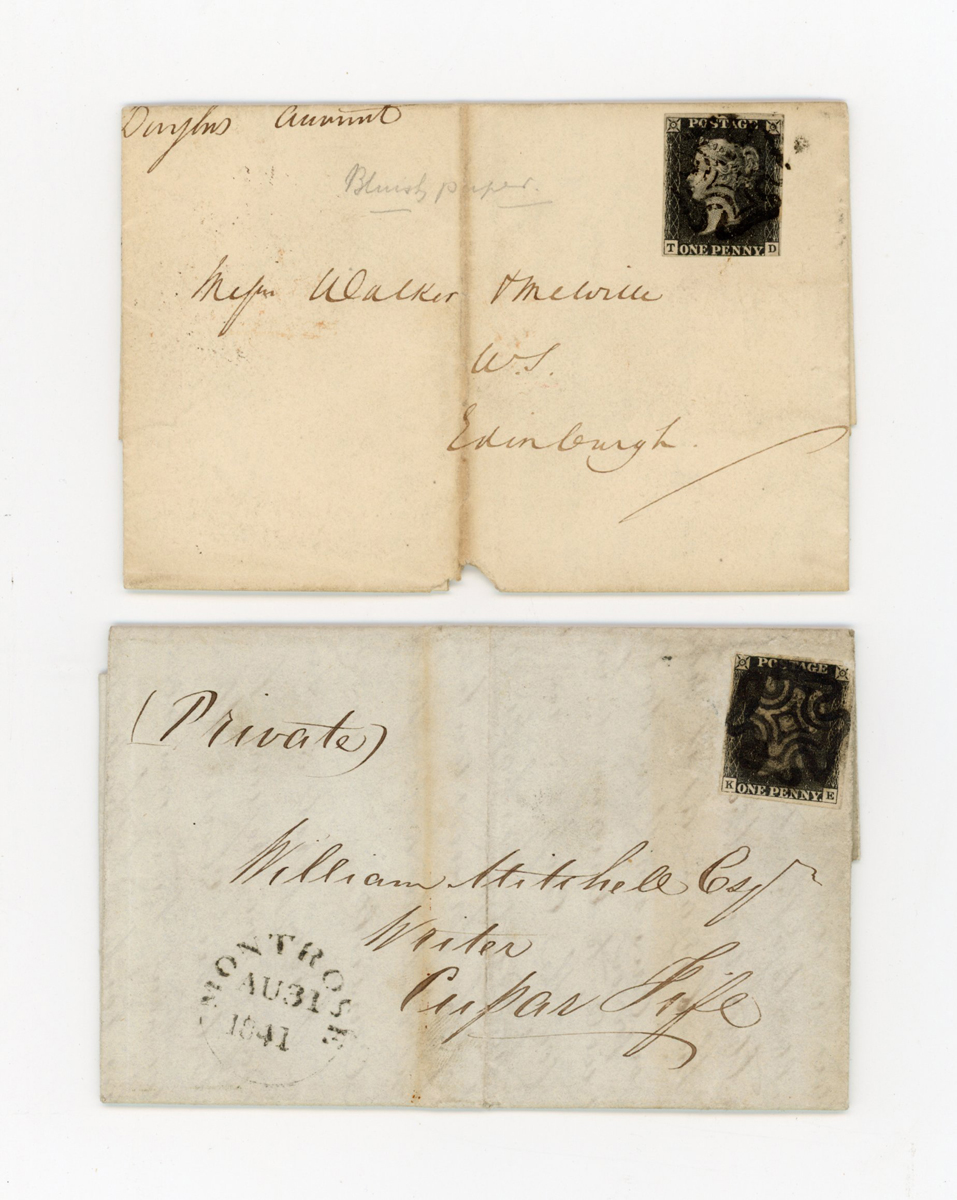 Douglas Account
POSTAGE
Bluish paper.
T ONE PENNY. D
Messrs Walker & Melville
W.S.
Edinburgh.
POSTAGE
(Private)
K ONE PENNY. E
William Mitchell Esqr
Writer
Cupar Fife
MONTROSE
AU 31
1841